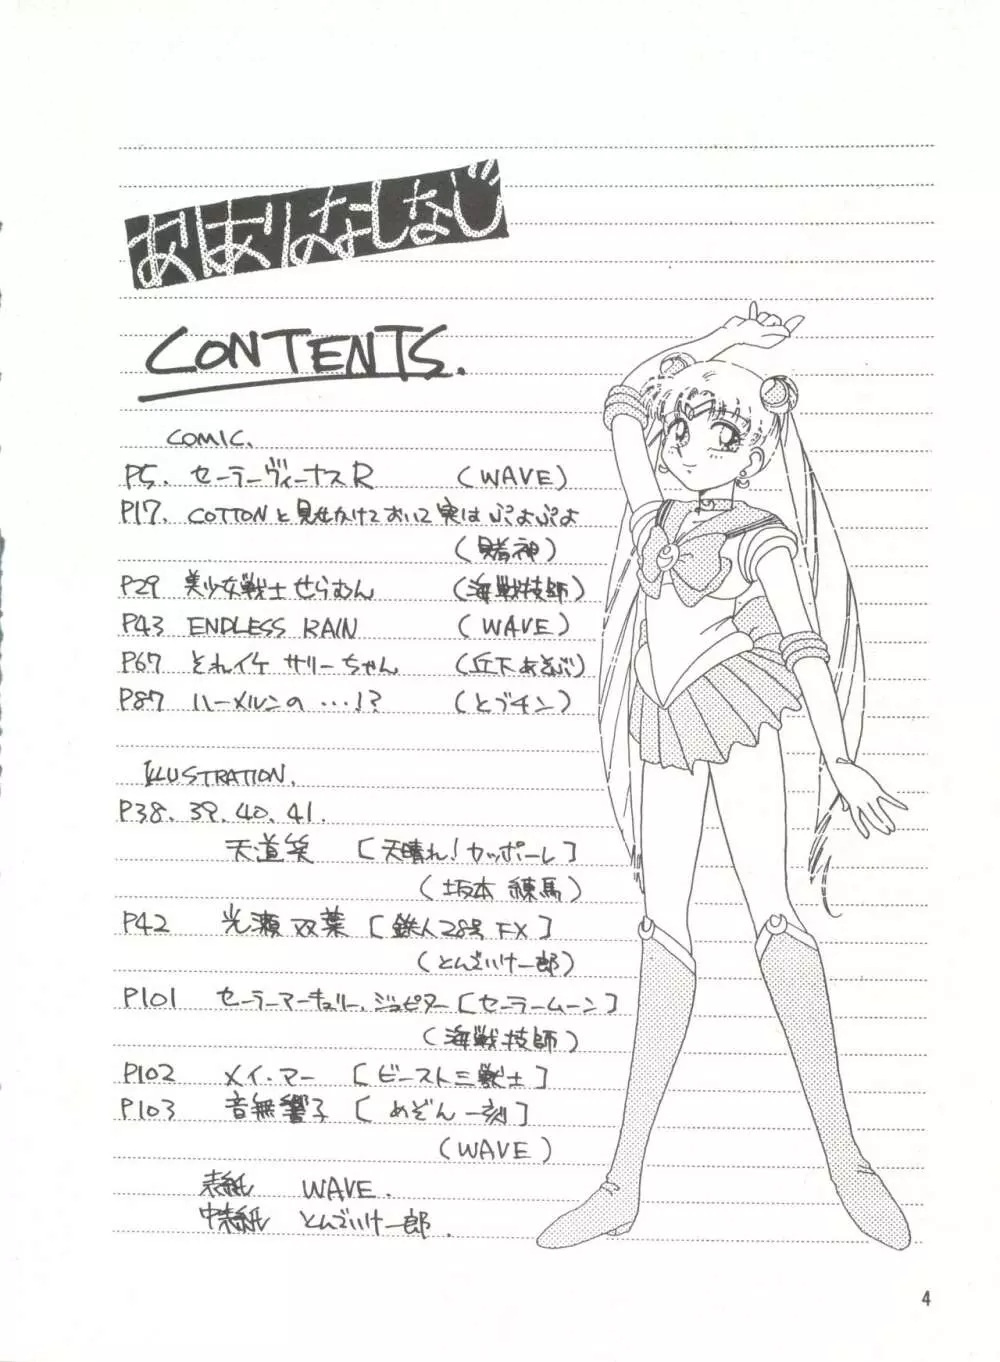 CONTENTS.
COMIC.
P5. セーラーヴィーナスR (WAVE)
P17. COTTONと見せかけておいて実はぷよぷよ
(賭神)
P29 美少女戦士せらむん (海戦技師)
P43 ENDLESS RAIN (WAVE)
P67 それイケ サリーちゃん (丘下あそぶ)
P87 ハーメルンの・・・!? (とブチン)
ILLUSTRATION.
P38. 39. 40. 41.
天道笑 [天晴れ!カッポーレ]
(坂本 練馬)
P42 光瀬 双葉 [鉄人28号 FX]
(とんでいけ一郎)
P101 セーラーマーキュリー. ジュピター [セーラームーン]
(海戦技師)
P102 メイ・マー [ビースト三獣士]
P103 音無響子 [めぞん一刻]
(WAVE)
表紙 WAVE.
中表紙 とんでいけ一郎.
4